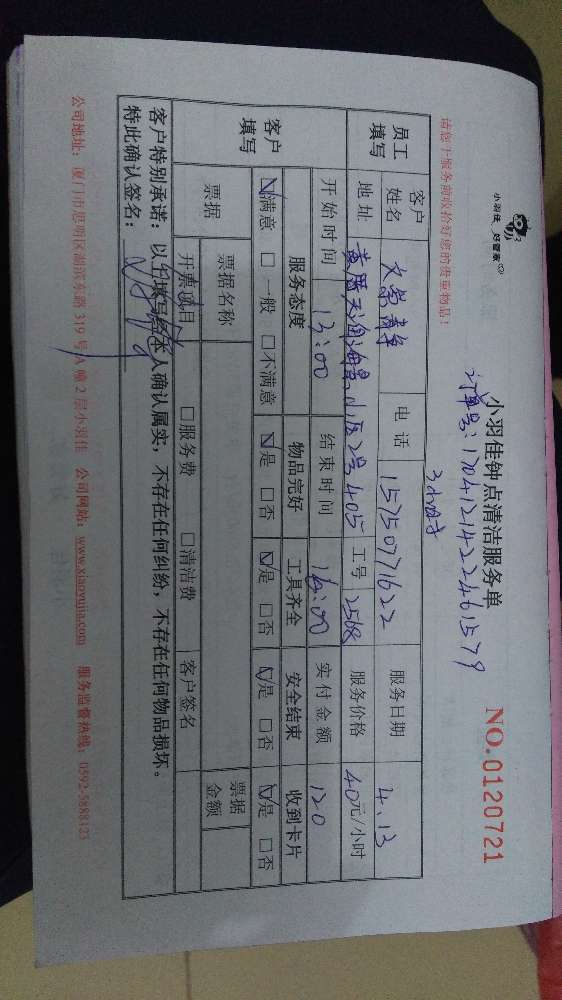 小羽佳 好管家
小羽佳钟点清洁服务单
NO.0120721
订单号:17041214224461579
请您于服务前收拾好您的贵重物品!
3小时
员工填写
客户姓名
电话 15750771622
服务日期 4.13
地址 2号405
工号 2568
服务价格 40元/小时
开始时间 13:00
结束时间 16:00
实付金额 120
客户填写
服务态度 物品完好 工具齐全 安全结束 收到卡片
☑满意 □一般 □不满意 ☑是 □否 ☑是 □否 ☑是 □否 ☑是 □否
票据 票据名称 票据金额
开票项目 □服务费 □清洁费 客户签名
客户特别承诺:以上填写经本人确认属实,不存在任何纠纷,不存在任何物品损坏。
特此确认签名:
公司地址:厦门市思明区湖滨东路319号A幢2层小羽佳 公司网站:www.xiaoyujia.com 服务监督热线:0592-5888123